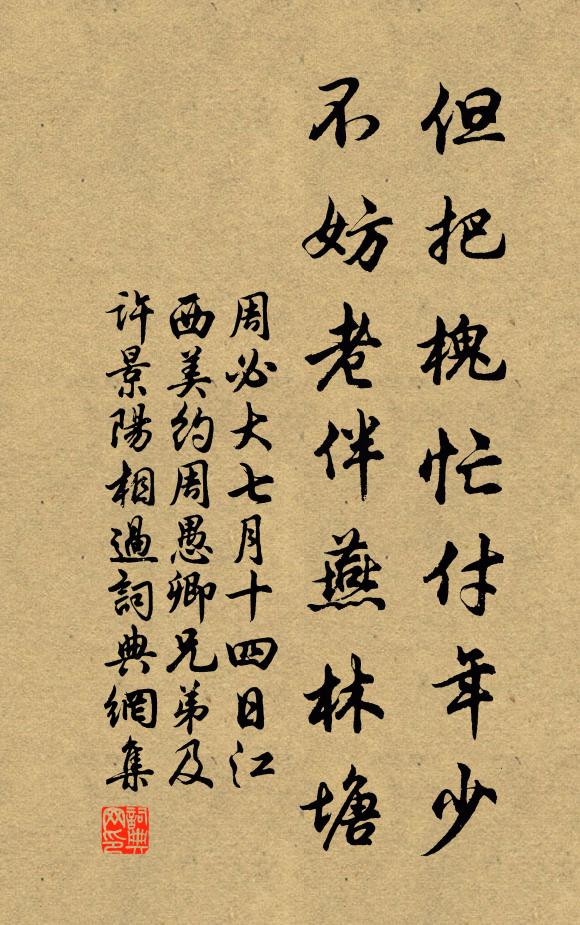 但把槐忙付年少
不妨老伴燕林塘
周必大七月十四日江
西美約周愚卿兄弟及
許景陽相過詞典網集
詞典网印